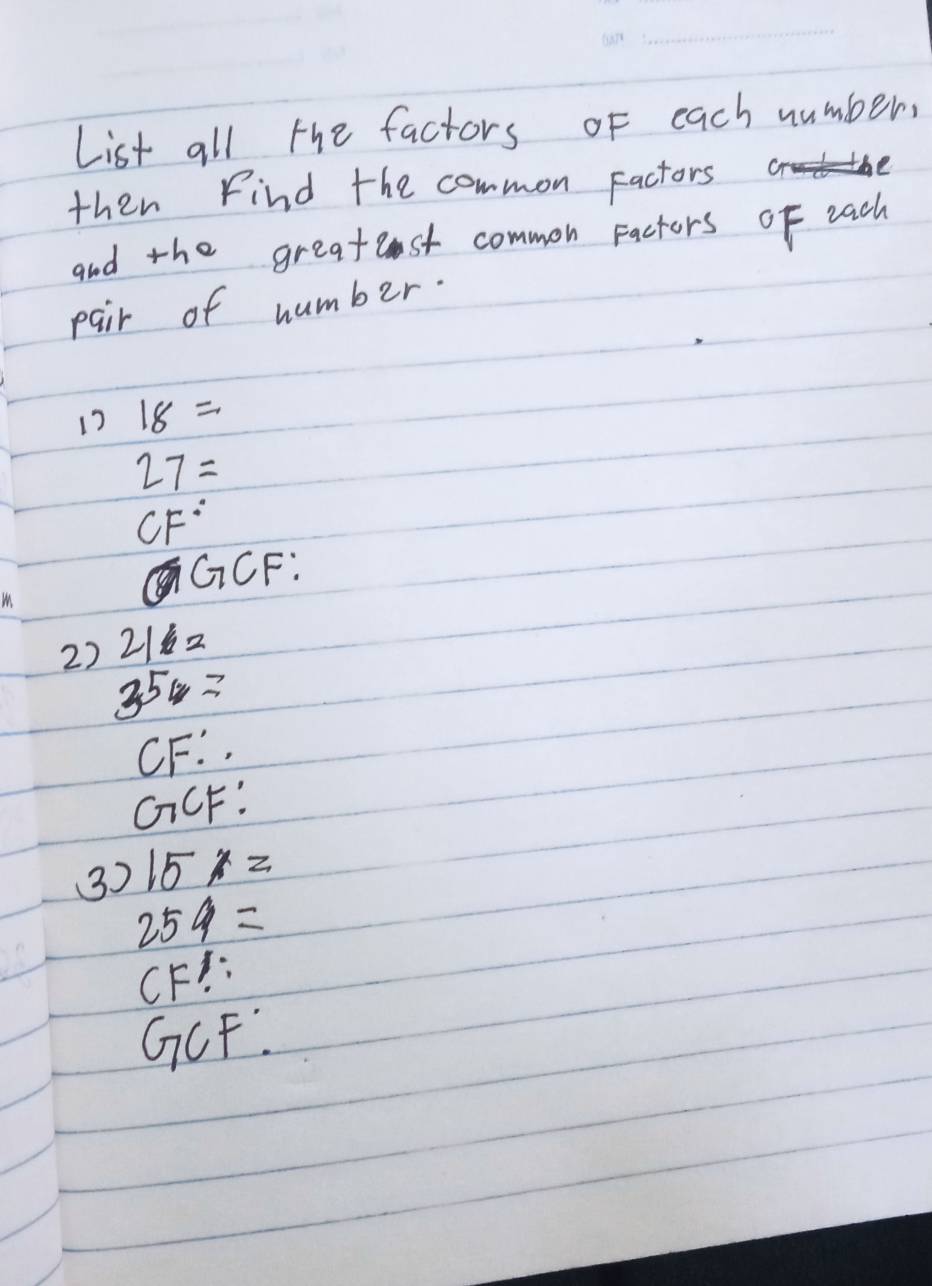 List all the factors of each number,
then Find the common Factors
and the greatest common Factors OF each
pair of number.
1) 18 =
27 =
CF:
GCF:
2) 21 =
35 =
CF:
GCF:
3) 15 =
25 =
CF:
GCF: